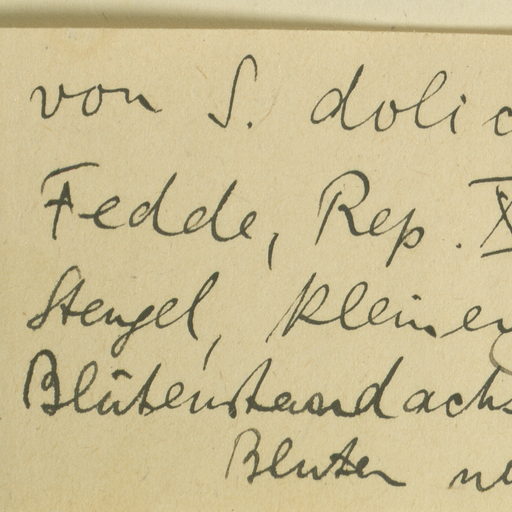 von S. dolic
Fedde, Rep. X
Stengel, kleiner
Blütenstandachs
Blüten